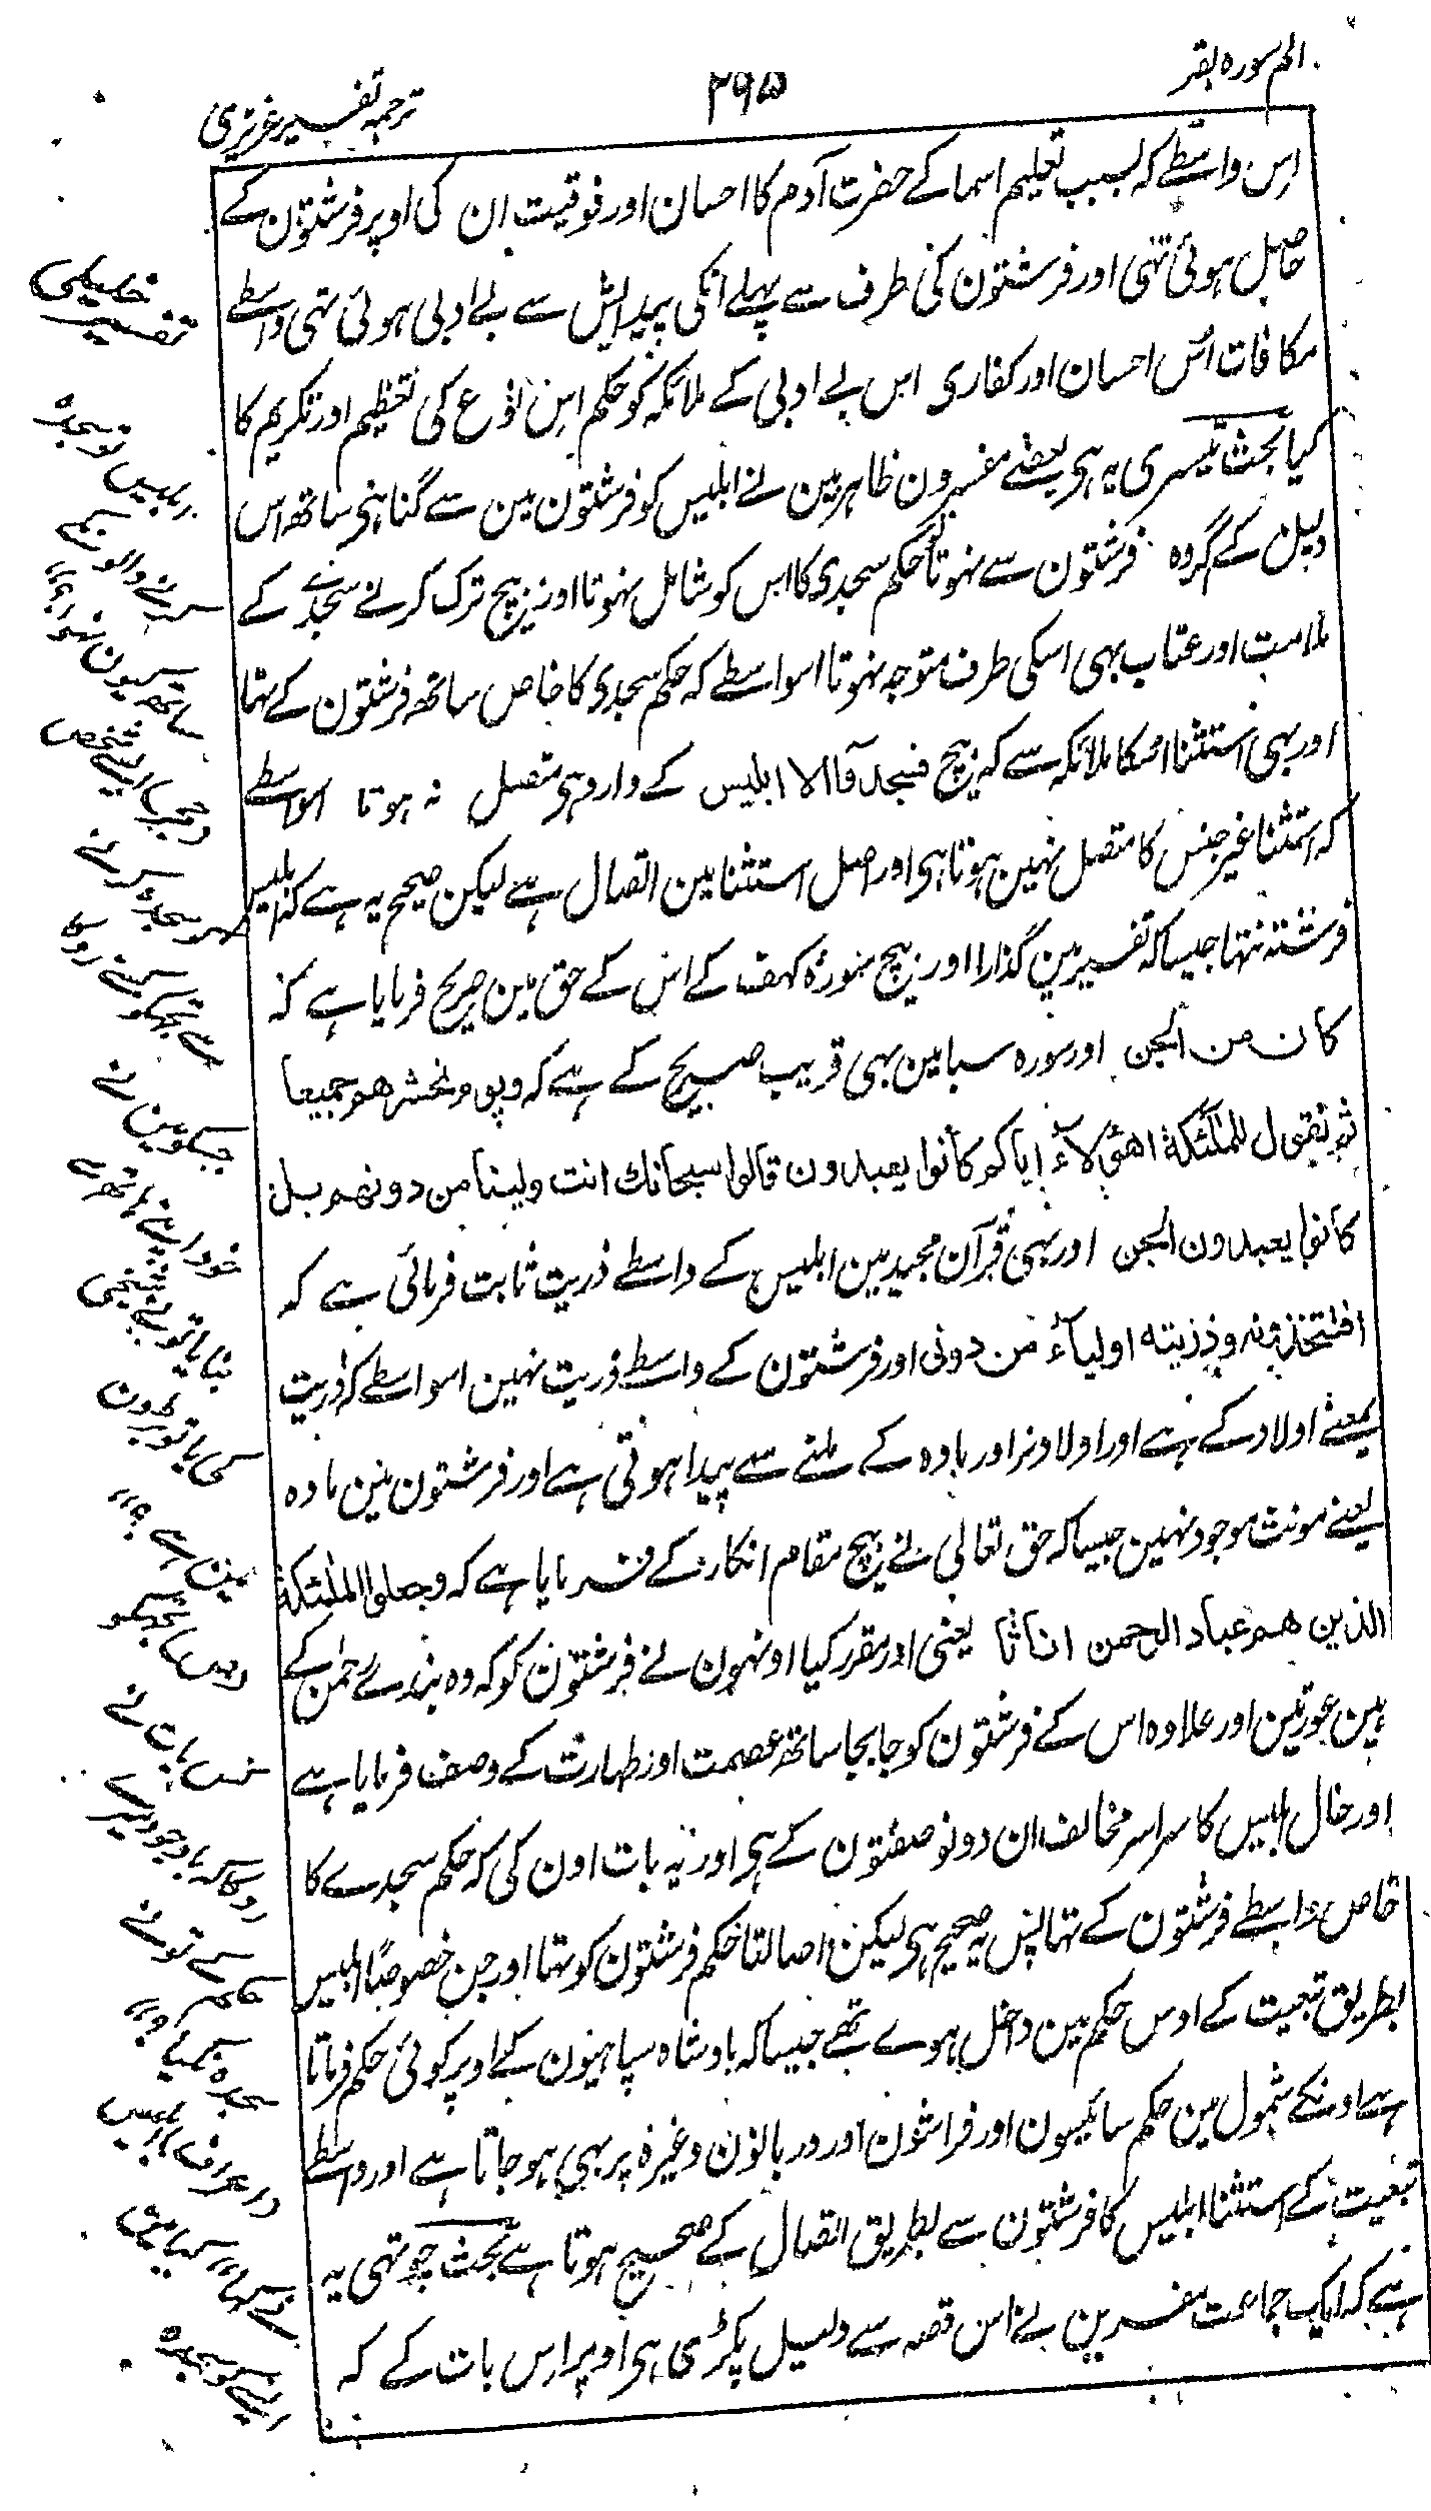 الم سورہ بقر
۲۹۵
ترجمہ تفسیر عزیزی
اس واسطے کہ بسبب تعلیم اسما کے حضرت آدم کا احسان اور فوقیت ان کی اوپر فرشتون کے
حاصل ہوئی تھی اور فرشتون کی طرف سے پہلے انکی پیدایش سے بے ادبی ہوئی تھی واسطے
مکافات اس احسان اور کفارہ اس بے ادبی کے ملائکہ کو حکم اس نوع کی تعظیم اور تکریم کا
کیا بحث تیسری یہ ہی بعضے مفسرون ظاہر بین نے ابلیس کو فرشتون مین سے گنا ہی ساتھ اس
دلیل کے گروہ فرشتون سے نہوتا حکم سجدی کا اس کو شامل نہوتا اور بیچ ترک کرنے سجدے کے
ملامت اور عتاب بہی اسکی طرف متوجہ نہوتا اسواسطے کہ حکم سجدی کا خاص ساتھ فرشتون کے تہا
اور بہی استثنا اسکا ملائکہ سے کہ بیچ فسجدوآ الا ابلیس کے وارد ہی متصل نہ ہوتا اسواسطے
کہ استثنا غیر جنس کا متصل نہین ہوتا ہی اور اصل استثنا مین اتصال ہے لیکن صحیح یہ ہے کہ ابلیس
فرشتہ نتہا جیسا کہ تفسیر مین گذارا اور بیچ سورۂ کہف کے اس کے حق مین صریح فرمایا ہے کہ
کان من الجن اور سورہ سبا مین بہی قریب صریح کے ہے کہ ویوم نحشرهم جمیعا
ثم نقول للملئکة اهؤلآء ایاکم کانوا یعبدون قالوا سبحانك انت ولینا من دونهم بل
کانوا یعبدون الجن اور بہی قرآن مجید مین ابلیس کے واسطے ذریت ثابت فرمائی ہے کہ
افتتخذونه وذریته اولیآء من دونی اور فرشتون کے واسطے ذریت نہین اسواسطے کہ ذریت
بمعنے اولاد کے ہے اور اولاد نر اور مادہ کے ملنے سے پیدا ہوتی ہے اور فرشتون مین مادہ
یعنے مونث موجود نہین جیسا کہ حق تعالی نے بیچ مقام انکار کے فرمایا ہے کہ وجعلوا الملئکة
الذین هم عباد الرحمن اناثا یعنی اور مقرر کیا اونہون نے فرشتون کو کہ وہ بندے رحمٰن کے
ہین عورتین اور علاوہ اس کے فرشتون کو جا بجا ساتھ عصمت اور طہارت کے وصف فرمایا ہے
اور حال ابلیس کا سراسر مخالف ان دونو صفتون کے ہی اور یہ بات اون کی کہ حکم سجدے کا
خاص واسطے فرشتون کے تہا پس یہ صحیح ہی لیکن اصالتا حکم فرشتون کو تہا اور جن خصوصًا ابلیس
بطریق تبعیت کے اوس حکم مین داخل ہوے تہے جیسا کہ بادشاہ سپاہیون کے اوپر کوئی حکم فرماتا
ہے اونکے شمول مین حکم سائیسون اور فراشون اور دربانون وغیرہ پر بہی ہو جاتا ہے اور واسطے
تبعیت کے استثنا ابلیس کا فرشتون سے بطریق اتصال کے صحیح ہوتا ہے بحث چوتہی یہ
ہے کہ ایک جماعت مفسرین نے اس قصہ سے دلیل پکڑی ہی اوپر اس بات کے کہ
تفسیر خلیلی
ابلیس تو سجدہ
کرنے والونکے
ساتھ کیون نہوا؟
ایسے شخص
کو سجدہ کرنے
سے تجہکو کسنے روکا
جسکو مین نے
خود اپنے ہاتھ سے
بنایا تو نے شیخی
کی یا تو بڑون
مین ہے؟
نے
روکا کہ باوجود میرے
حکم کے تو نے
سجدہ نکیا؟
ابلیس
نے کہا کیا مین
ایسے کو سجدہ